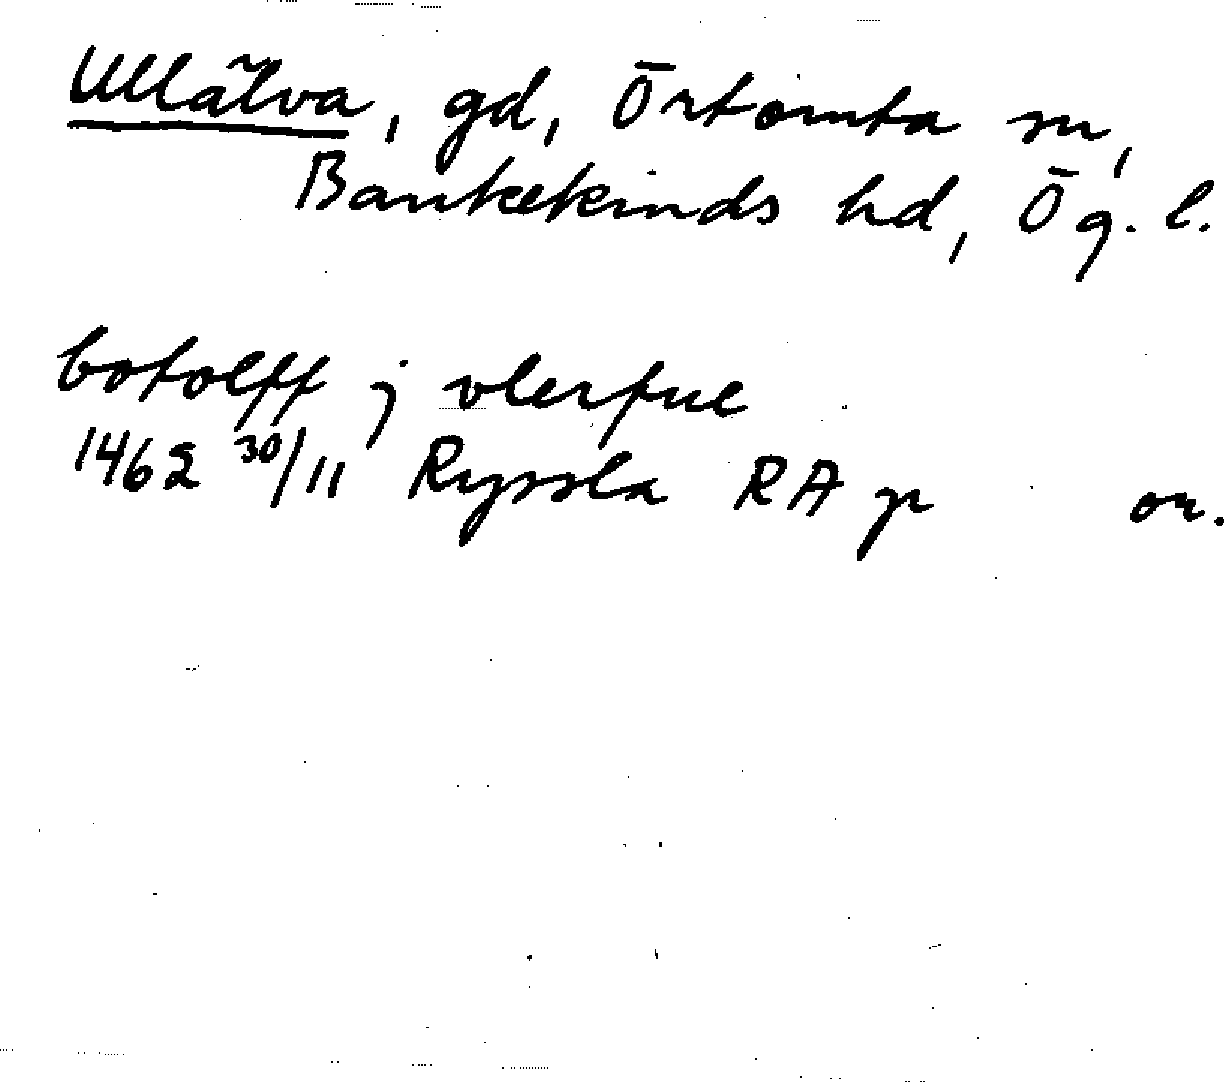 Ullälva, gd, Örtomta sn,
Bankekinds hd, Ög. l.
botolff j vlerfue
1462 30/11 Ryssla RA p or.